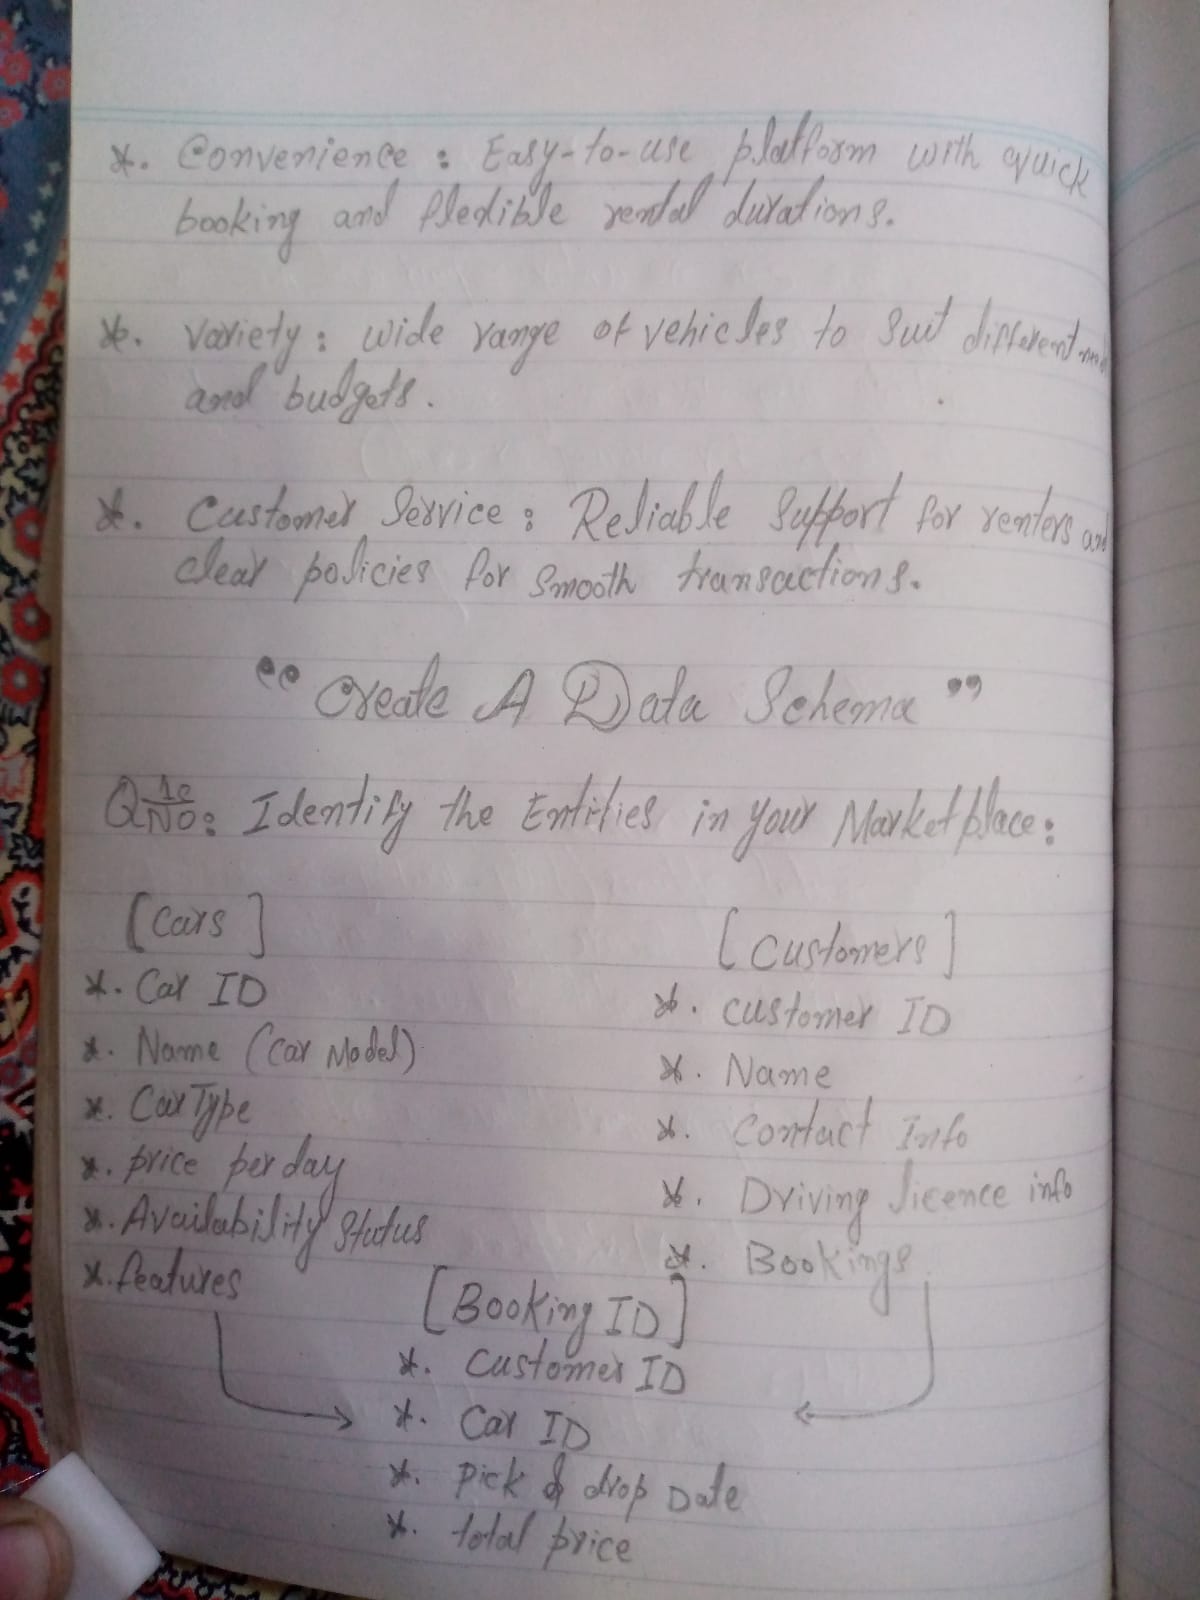 *. Convenience : Easy-to-use platform with quick
booking and fledible rental durations.
*. Variety : wide range of vehicles to suit different
and budgets.
*. Customer Service : Reliable Support for renters and
clear policies for smooth transactions.
“Create A Data Schema”
Q No 1: Identify the Entities in your Marketplace:
[Cars]
*. Car ID
*. Name (Car Model)
*. Car Type
*. price per day
*. Availability Status
*. features
[Customers]
*. Customer ID
*. Name
*. Contact Info
*. Driving licence info
*. Bookings
[Booking ID]
*. Customer ID
*. Car ID
*. Pick & drop Date
*. total price